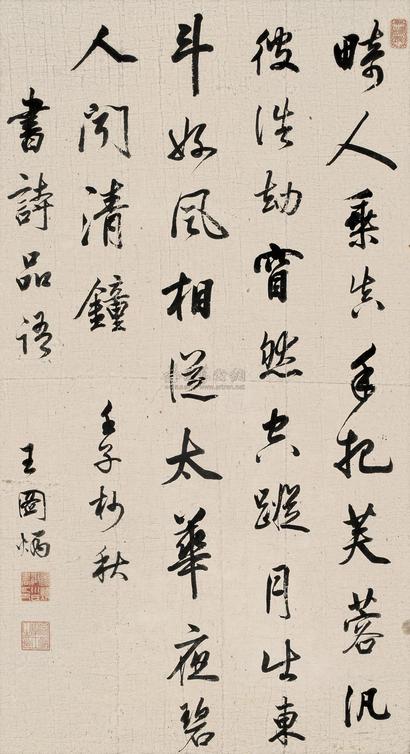 畸人乘真手把芙蓉汎
彼浩劫窅然空蹤月出東
斗好風相從太華夜碧
人聞清鐘 壬子杪秋
書詩品語 王圖炳